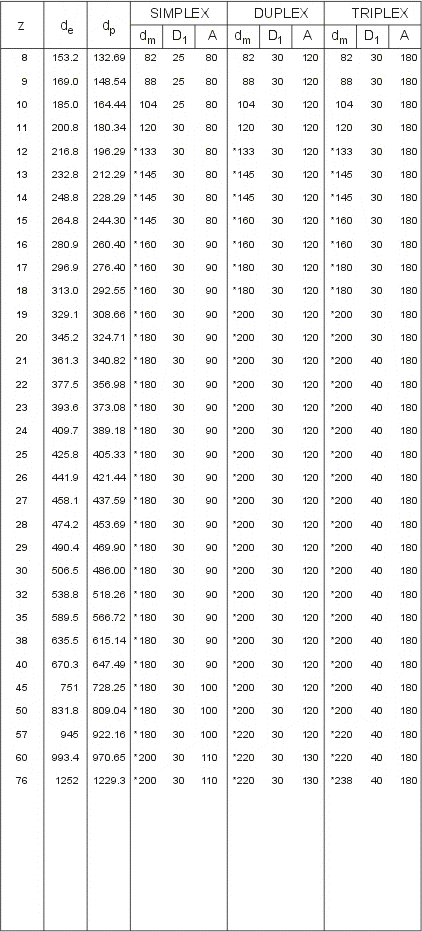 SIMPLEX DUPLEX TRIPLEX
z de dp dm D1 A dm D1 A dm D1 A
8 153.2 132.69 82 25 80 82 30 120 82 30 180
9 169.0 148.54 88 25 80 88 30 120 88 30 180
10 185.0 164.44 104 25 80 104 30 120 104 30 180
11 200.8 180.34 120 30 80 120 30 120 120 30 180
12 216.8 196.29 *133 30 80 *133 30 120 *133 30 180
13 232.8 212.29 *145 30 80 *145 30 120 *145 30 180
14 248.8 228.29 *145 30 80 *145 30 120 *145 30 180
15 264.8 244.30 *145 30 80 *160 30 120 *160 30 180
16 280.9 260.40 *160 30 90 *160 30 120 *160 30 180
17 296.9 276.40 *160 30 90 *180 30 120 *180 30 180
18 313.0 292.55 *160 30 90 *180 30 120 *180 30 180
19 329.1 308.66 *160 30 90 *200 30 120 *200 30 180
20 345.2 324.71 *180 30 90 *200 30 120 *200 30 180
21 361.3 340.82 *180 30 90 *200 30 120 *200 40 180
22 377.5 356.98 *180 30 90 *200 30 120 *200 40 180
23 393.6 373.08 *180 30 90 *200 30 120 *200 40 180
24 409.7 389.18 *180 30 90 *200 30 120 *200 40 180
25 425.8 405.33 *180 30 90 *200 30 120 *200 40 180
26 441.9 421.44 *180 30 90 *200 30 120 *200 40 180
27 458.1 437.59 *180 30 90 *200 30 120 *200 40 180
28 474.2 453.69 *180 30 90 *200 30 120 *200 40 180
29 490.4 469.90 *180 30 90 *200 30 120 *200 40 180
30 506.5 486.00 *180 30 90 *200 30 120 *200 40 180
32 538.8 518.26 *180 30 90 *200 30 120 *200 40 180
35 589.5 566.72 *180 30 90 *200 30 120 *200 40 180
38 635.5 615.14 *180 30 90 *200 30 120 *200 40 180
40 670.3 647.49 *180 30 90 *200 30 120 *200 40 180
45 751 728.25 *180 30 100 *200 30 120 *200 40 180
50 831.8 809.04 *180 30 100 *200 30 120 *200 40 180
57 945 922.16 *180 30 100 *220 30 120 *220 40 180
60 993.4 970.65 *200 30 110 *220 30 130 *220 40 180
76 1252 1229.3 *200 30 110 *220 30 130 *238 40 180